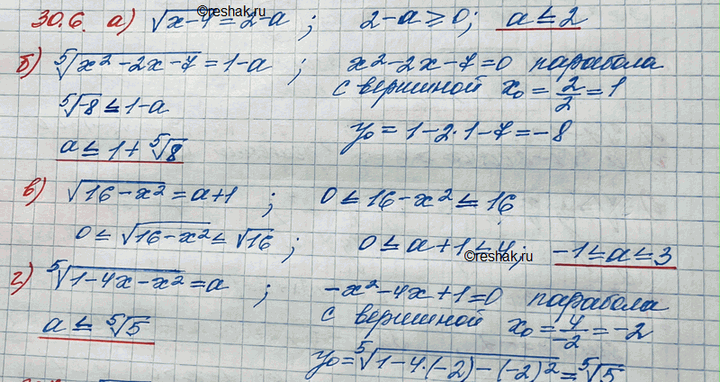 ©reshak.ru
30.6. а) √(x-7) = 2-a ; 2-a ≥ 0; a ≤ 2
б) ⁵√(x²-2x-7) = 1-a ; x²-2x-7=0 парабола
с вершиной x₀ = 2/2 = 1
⁵√-8 ≤ 1-a
y₀ = 1-2·1-7 = -8
a ≤ 1+⁵√8
в) √(16-x²) = a+1 ; 0 ≤ 16-x² ≤ 16
0 ≤ √(16-x²) ≤ √16 ; 0 ≤ a+1 ≤ 4; -1 ≤ a ≤ 3
©reshak.ru
г) ⁵√(1-4x-x²) = a ; -x²-4x+1=0 парабола
с вершиной x₀ = 4/-2 = -2
a ≤ ⁵√5
y₀ = ⁵√(1-4·(-2)-(-2)²) = ⁵√5
©reshak.ru